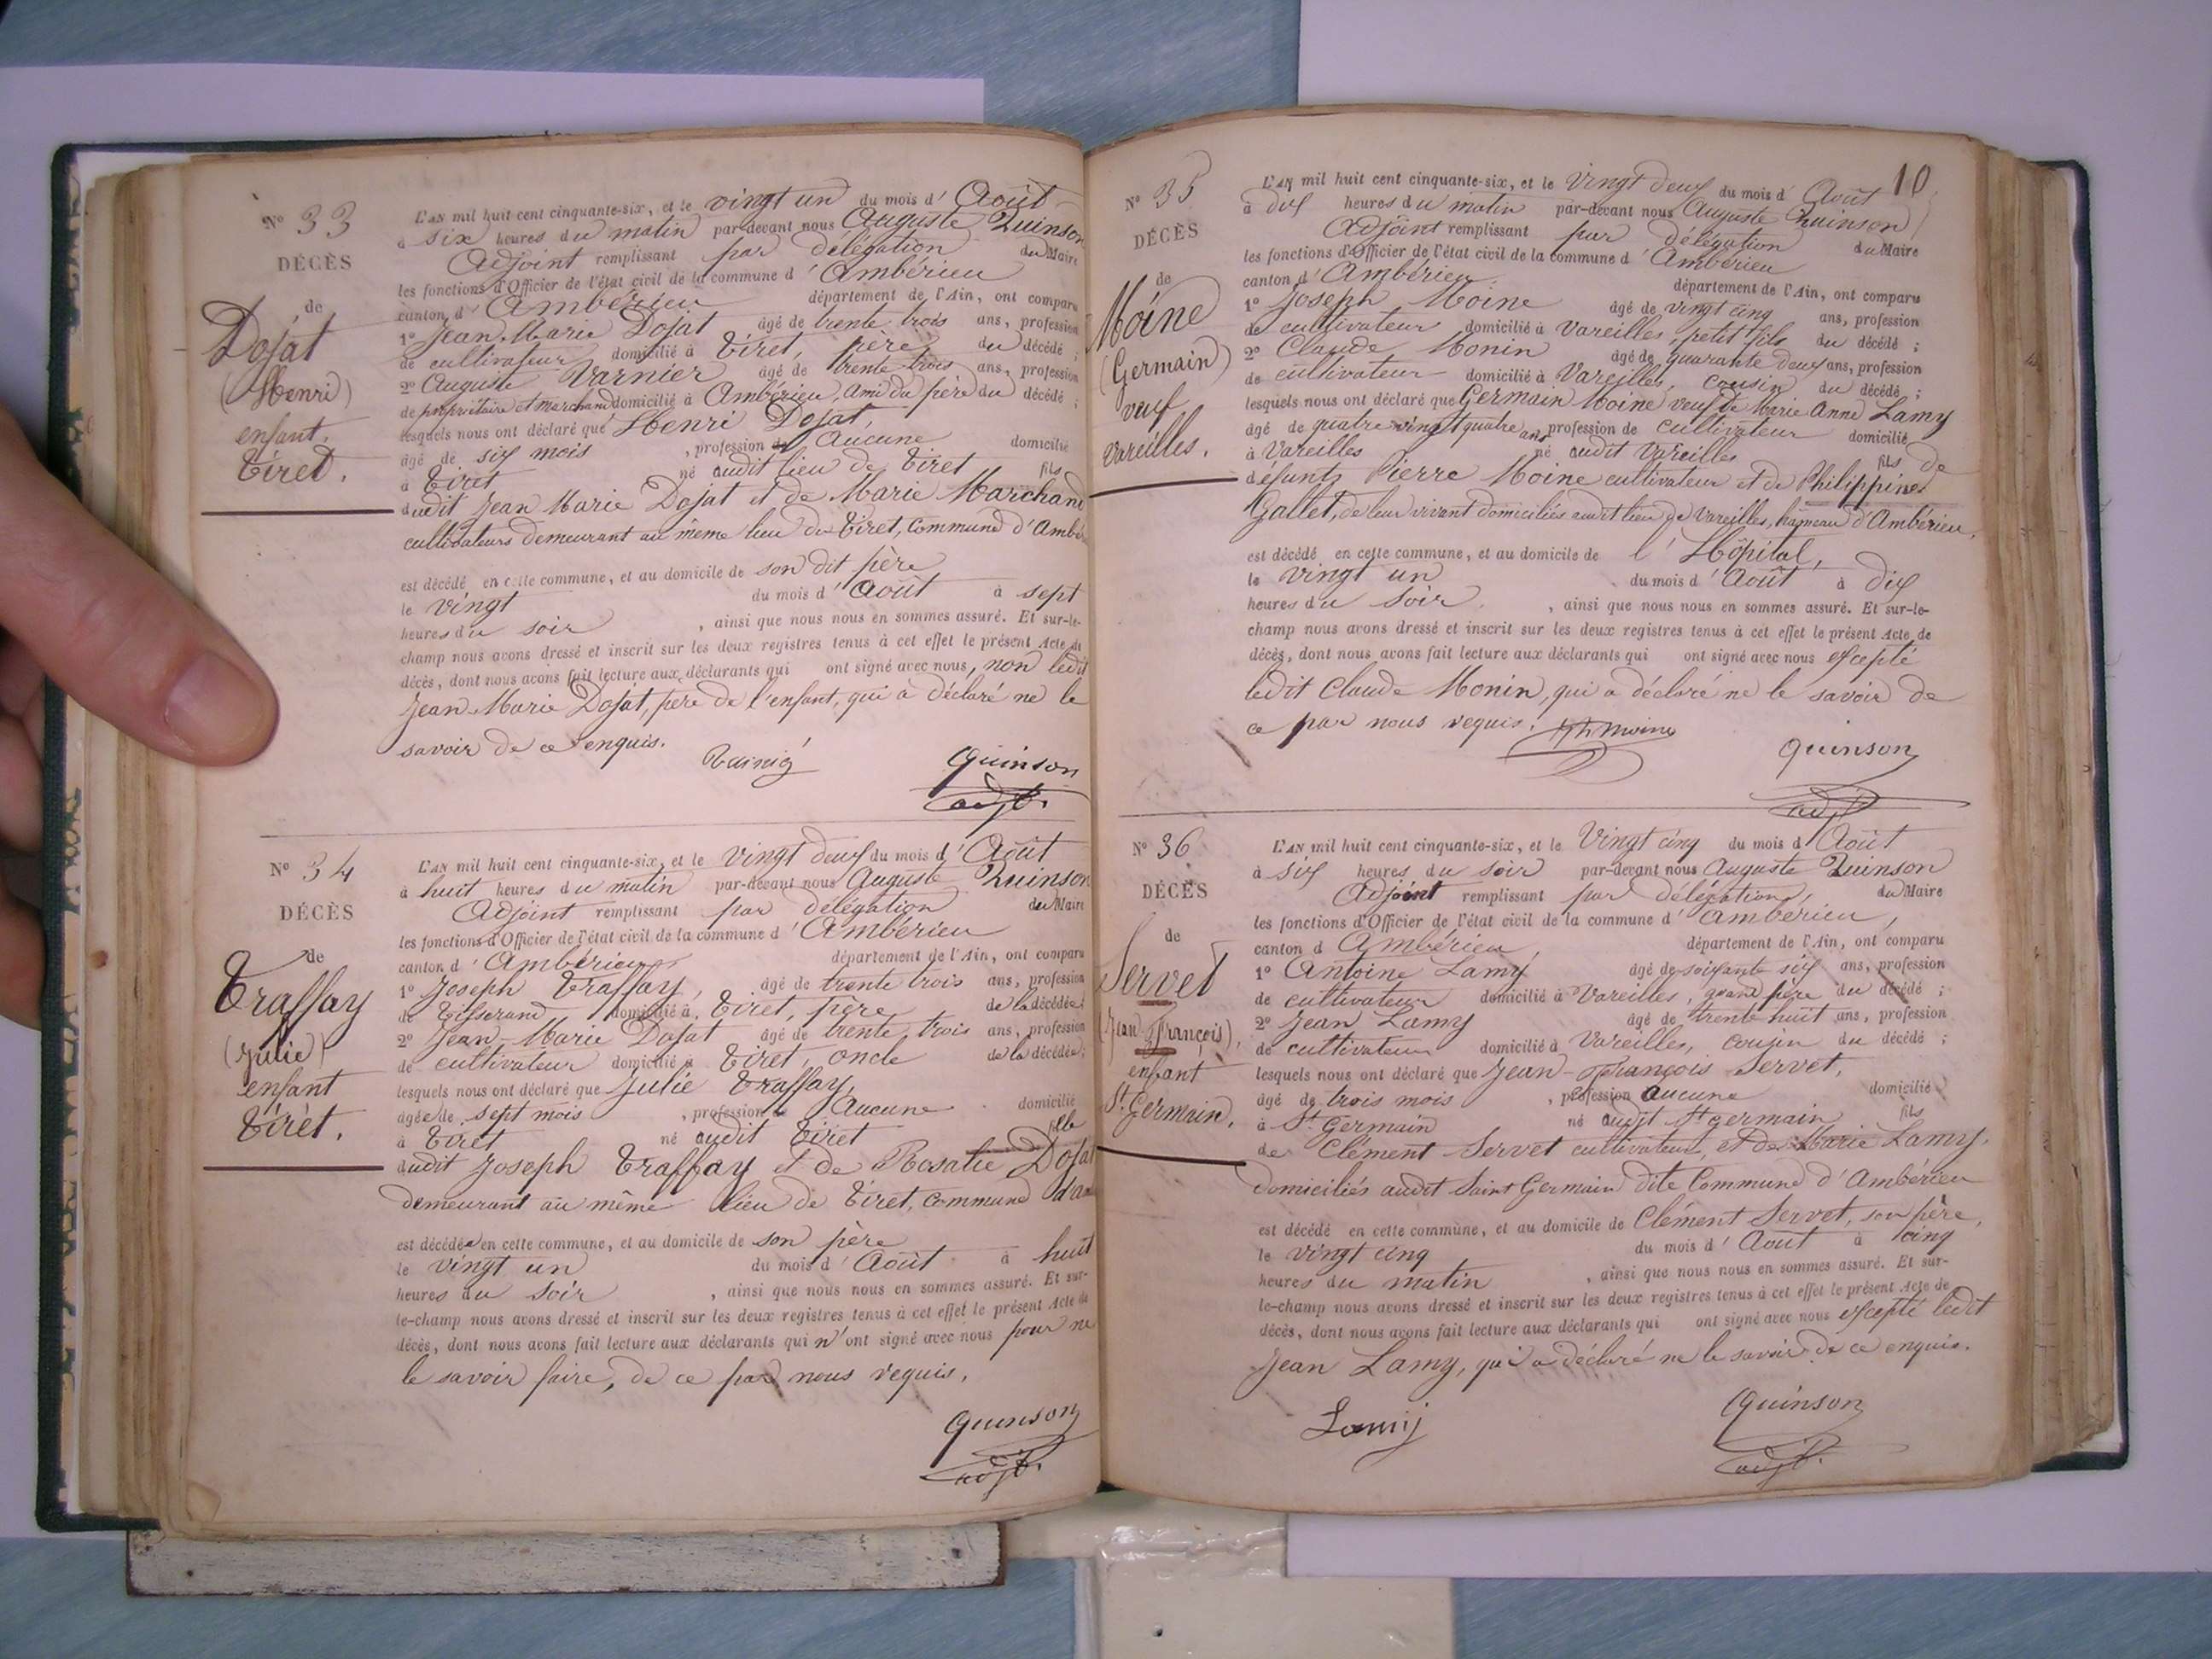 N° 33
DÉCÈS
de
Dojat
(Henri)
enfant.
Tiret.
L'AN mil huit cent cinquante-six, et le vingt un du mois d'Août
à six heures du matin par-devant nous Auguste Quinson
Adjoint remplissant par délégation du Maire
les fonctions d'Officier de l'état civil de la commune d'Ambérieu
canton d'Ambérieu département de l'Ain, ont comparu
1° Jean-Marie Dojat âgé de trente trois ans, profession
de cultivateur domicilié à Tiret, père du décédé ;
2° Auguste Varnier âgé de trente trois ans, profession
de propriétaire et marchand domicilié à Ambérieu, ami du père du décédé ;
lesquels nous ont déclaré que Henri Dojat,
âgé de six mois, profession de Aucune domicilié
à Tiret né audit lieu de Tiret fils
dudit Jean Marie Dojat et de Marie Marchand
cultivateurs demeurant au même lieu de Tiret, Commune d'Ambé
est décédé en cette commune, et au domicile de son dit père
le vingt du mois d'Août à sept
heures du soir, ainsi que nous nous en sommes assuré. Et sur-le-
champ nous avons dressé et inscrit sur les deux registres tenus à cet effet le présent Acte de
décès, dont nous avons fait lecture aux déclarants qui ont signé avec nous, non ledit
Jean-Marie Dojat, père de l'enfant, qui a déclaré ne le
savoir de ce enquis.
Quinson
adjt.
N° 34
DÉCÈS
de
Traffay
(Julie)
enfant
Tiret.
L'AN mil huit cent cinquante-six, et le vingt deux du mois d'Août
à huit heures du matin par-devant nous Auguste Quinson
Adjoint remplissant par délégation du Maire
les fonctions d'Officier de l'état civil de la commune d'Ambérieu
canton d'Ambérieu département de l'Ain, ont comparu
1° Joseph Traffay, âgé de trente trois ans, profession
de Tisserand domicilié à Tiret, père de la décédée ;
2° Jean-Marie Dojat âgé de trente trois ans, profession
de cultivateur domicilié à Tiret, oncle de la décédée ;
lesquels nous ont déclaré que Julie Traffay,
âgée de sept mois, profession de Aucune domicilié
à Tiret né audit Tiret fille
dudit Joseph Traffay et de Rosalie Dojat
demeurant au même lieu de Tiret, Commune d'Am
est décédée en cette commune, et au domicile de son père
le vingt un du mois d'Août à huit
heures du soir, ainsi que nous nous en sommes assuré. Et sur-
le-champ nous avons dressé et inscrit sur les deux registres tenus à cet effet le présent Acte de
décès, dont nous avons fait lecture aux déclarants qui n'ont signé avec nous pour ne
le savoir faire, de ce par nous requis.
Quinson
adjt.
10
N° 35
DÉCÈS
de
Moine
(Germain)
veuf
Vareilles.
L'AN mil huit cent cinquante-six, et le vingt deux du mois d'Août
à dix heures du matin par-devant nous Auguste Quinson
Adjoint remplissant par délégation du Maire
les fonctions d'Officier de l'état civil de la commune d'Ambérieu
canton d'Ambérieu département de l'Ain, ont comparu
1° Joseph Moine âgé de vingt cinq ans, profession
de cultivateur domicilié à Vareilles, petit fils du décédé ;
2° Claude Monin âgé de quarante deux ans, profession
de cultivateur domicilié à Vareilles, cousin du décédé ;
lesquels nous ont déclaré que Germain Moine veuf de Marie Anne Lamy
âgé de quatre vingt quatre ans, profession de cultivateur domicilié
à Vareilles né audit Vareilles fils de
défunts Pierre Moine cultivateur et de Philippine
Gallet, de leur vivant domiciliés audit lieu de Vareilles, hameau d'Ambérieu,
est décédé en cette commune, et au domicile de l'Hôpital,
le vingt un du mois d'Août à dix
heures du soir, ainsi que nous nous en sommes assuré. Et sur-le-
champ nous avons dressé et inscrit sur les deux registres tenus à cet effet le présent Acte de
décès, dont nous avons fait lecture aux déclarants qui ont signé avec nous excepté
ledit Claude Monin, qui a déclaré ne le savoir de
ce par nous requis. Moine
Quinson
adjt
N° 36
DÉCÈS
de
Servet
(Jean François),
enfant
St. Germain.
L'AN mil huit cent cinquante-six, et le vingt cinq du mois d'Août
à six heures du soir par-devant nous Auguste Quinson
Adjoint remplissant par délégation, du Maire
les fonctions d'Officier de l'état civil de la commune d'Ambérieu,
canton d'Ambérieu, département de l'Ain, ont comparu
1° Antoine Lamy âgé de soixante six ans, profession
de cultivateur domicilié à Vareilles, grand père du décédé ;
2° Jean Lamy âgé de trente huit ans, profession
de cultivateur domicilié à Vareilles, cousin du décédé ;
lesquels nous ont déclaré que Jean-François Servet,
âgé de trois mois, profession aucune domicilié
à St. Germain né audit St. germain fils
de Clément Servet cultivateur, et de Marie Lamy,
domiciliés audit Saint Germain dite Commune d'Ambérieu
est décédé en cette commune, et au domicile de Clément Servet, son père,
le vingt cinq du mois d'Août à cinq
heures du matin, ainsi que nous nous en sommes assuré. Et sur-
le-champ nous avons dressé et inscrit sur les deux registres tenus à cet effet le présent Acte de
décès, dont nous avons fait lecture aux déclarants qui ont signé avec nous excepté ledit
Jean Lamy, qui a déclaré ne le savoir de ce enquis.
Lamij
Quinson
adjt.